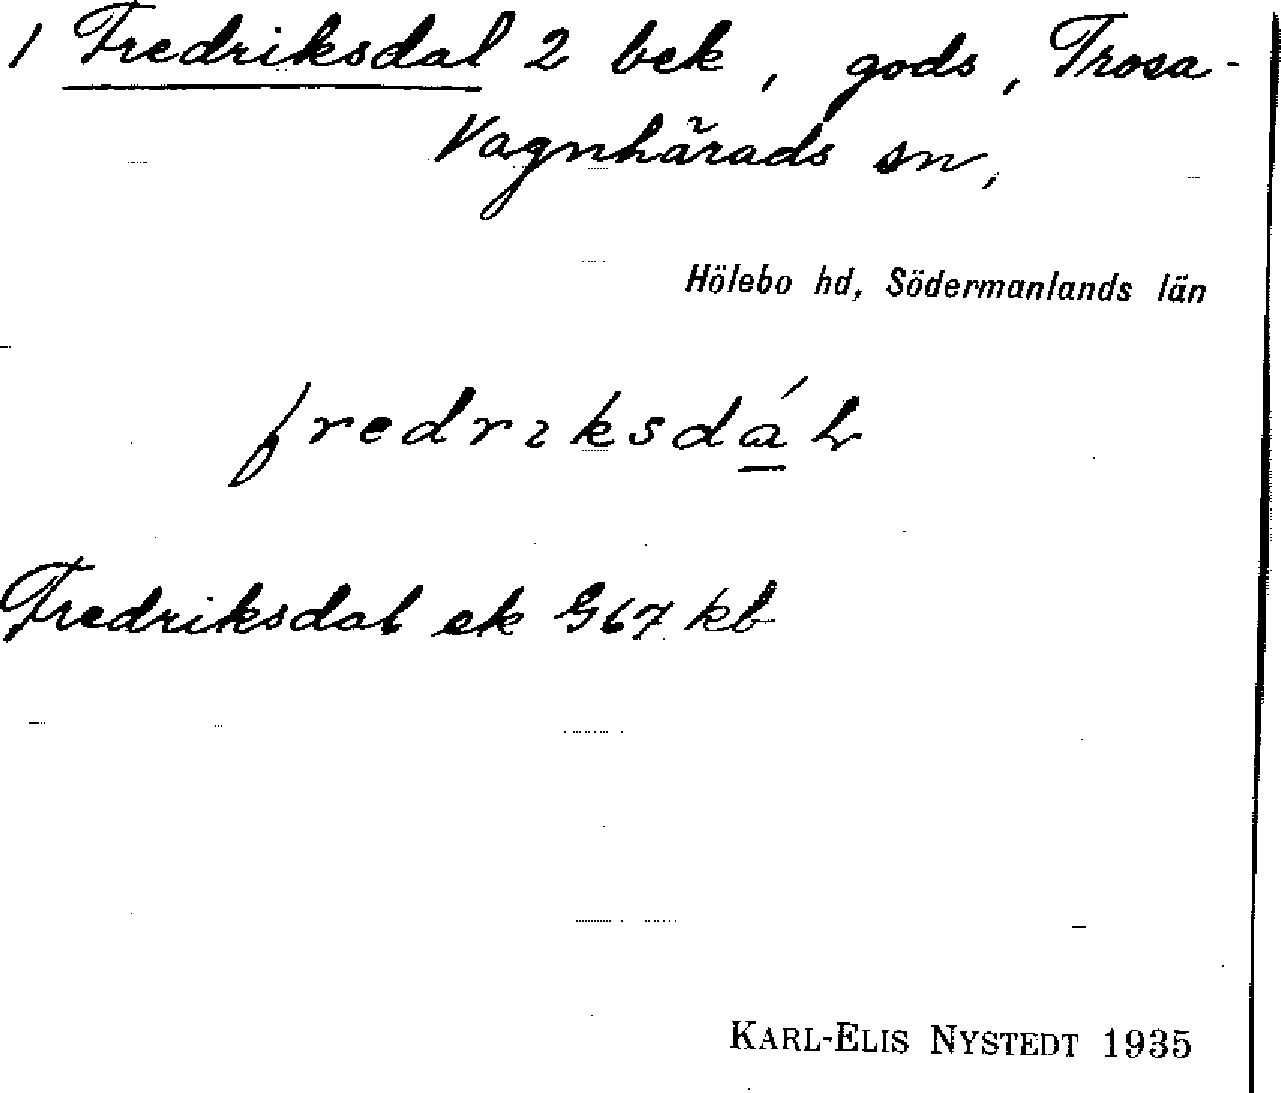 / Fredriksdal 2 bek, gods, Trosa-
Vagnhärads sn,
Hölebo hd, Södermanlands län
fredrıksdál
Fredriksdal ek G67 kb
KARL-ELIS NYSTEDT 1935